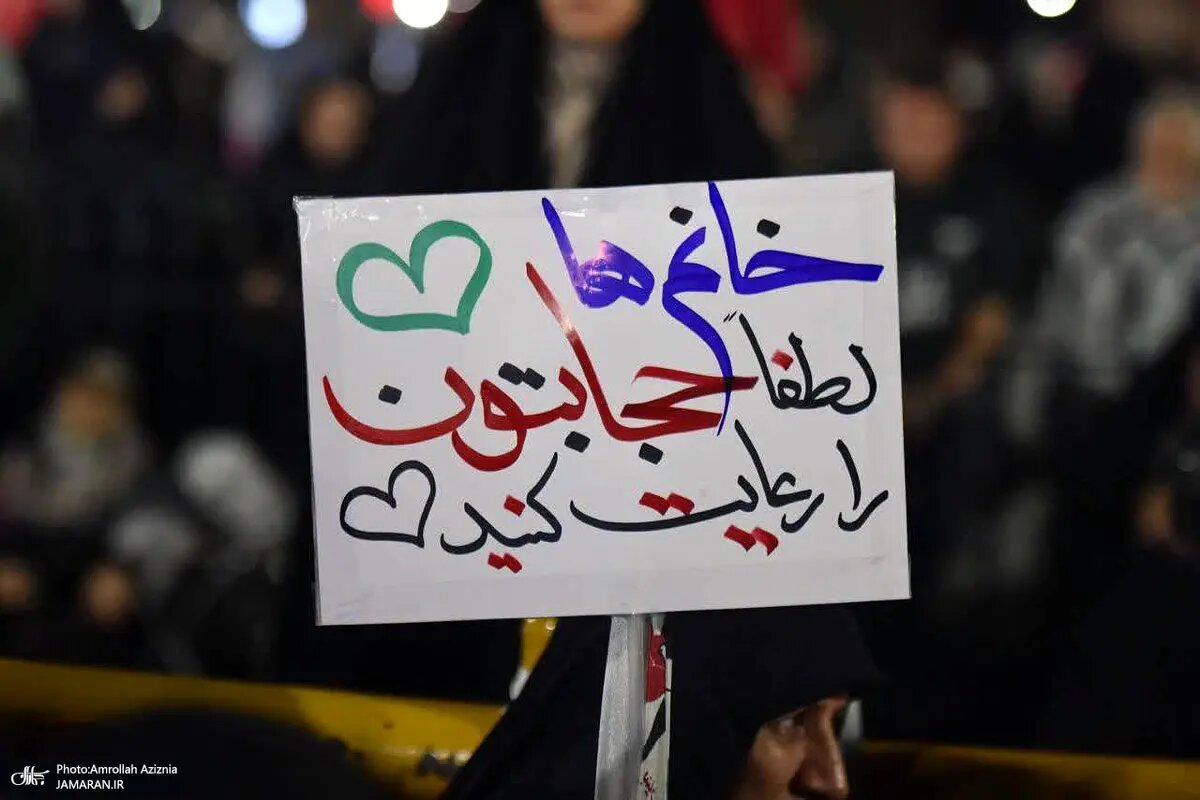 خانم ها
لطفاً حجابتون
را رعایت کنید
Photo:Amrollah Aziznia
JAMARAN.IR